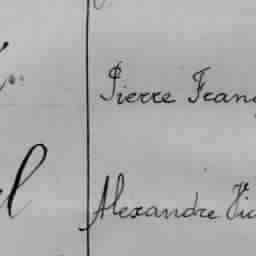 Pierre Franç
Alexandre Vic